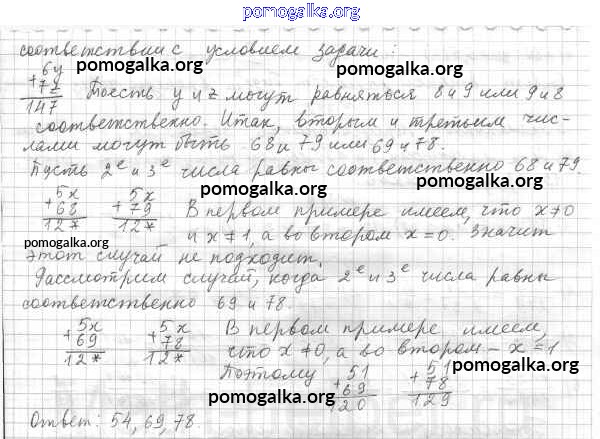 pomogalka.org
соответствии с условием задачи:
6y
+7z
147
pomogalka.org
То есть y и z могут равняться 8 и 9 или 9 и 8
pomogalka.org
соответственно. Итак, вторым и третьим чис-
лами могут быть 68 и 79 или 69 и 78.
pomogalka.org
Пусть 2е и 3е числа равны соответственно 68 и 79.
pomogalka.org
5x
+68
12*
5x
+79
12*
В первом примере имеем, что x≠0
и x≠1, а во втором x=0. Значит
pomogalka.org
этот случай не подходит.
pomogalka.org
Рассмотрим случай, когда 2е и 3е числа равны
соответственно 69 и 78.
pomogalka.org
5x
+69
12*
5x
+78
12*
В первом примере имеем,
что x≠0, а во втором – x=1
pomogalka.org
Поэтому
51
+69
120
51
+78
129
pomogalka.org
Ответ: 54, 69, 78.
pomogalka.org